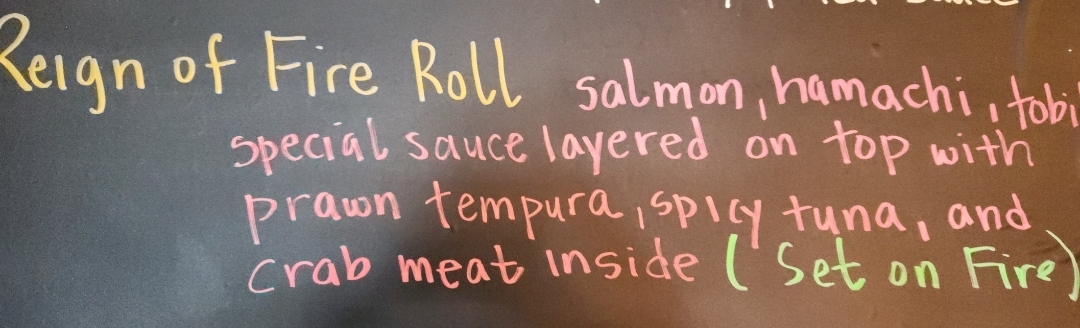 Reign of Fire Roll salmon, hamachi, tobi
special sauce layered on top with
prawn tempura, spicy tuna, and
crab meat inside (Set on Fire)